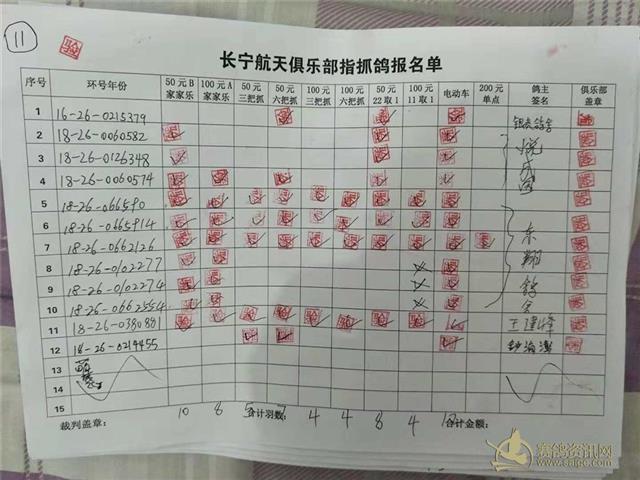 11
验
长宁航天俱乐部指抓鸽报名单
序号 环号年份 50元B家家乐 100元A家家乐 50元三把抓 50元六把抓 100元三把抓 100元六把抓 50元22取1 100元11取1 电动车 200元单点 鸽主签名 俱乐部盖章
1 16-26-0215379
2 18-26-0060582
3 18-26-0126348
4 18-26-0060574
5 18-26-066590
6 18-26-0665914 东
7 18-26-0662126 翔
8 18-26-0102277 鸽
9 18-26-0102274 舍
10 18-26-0662554
11 18-26-0380881
12 18-26-0219455
13
14
15
裁判盖章: 10 8 5 合计羽数: 4 4 8 4 12 合计金额:
赛鸽资讯网
www.saige.com